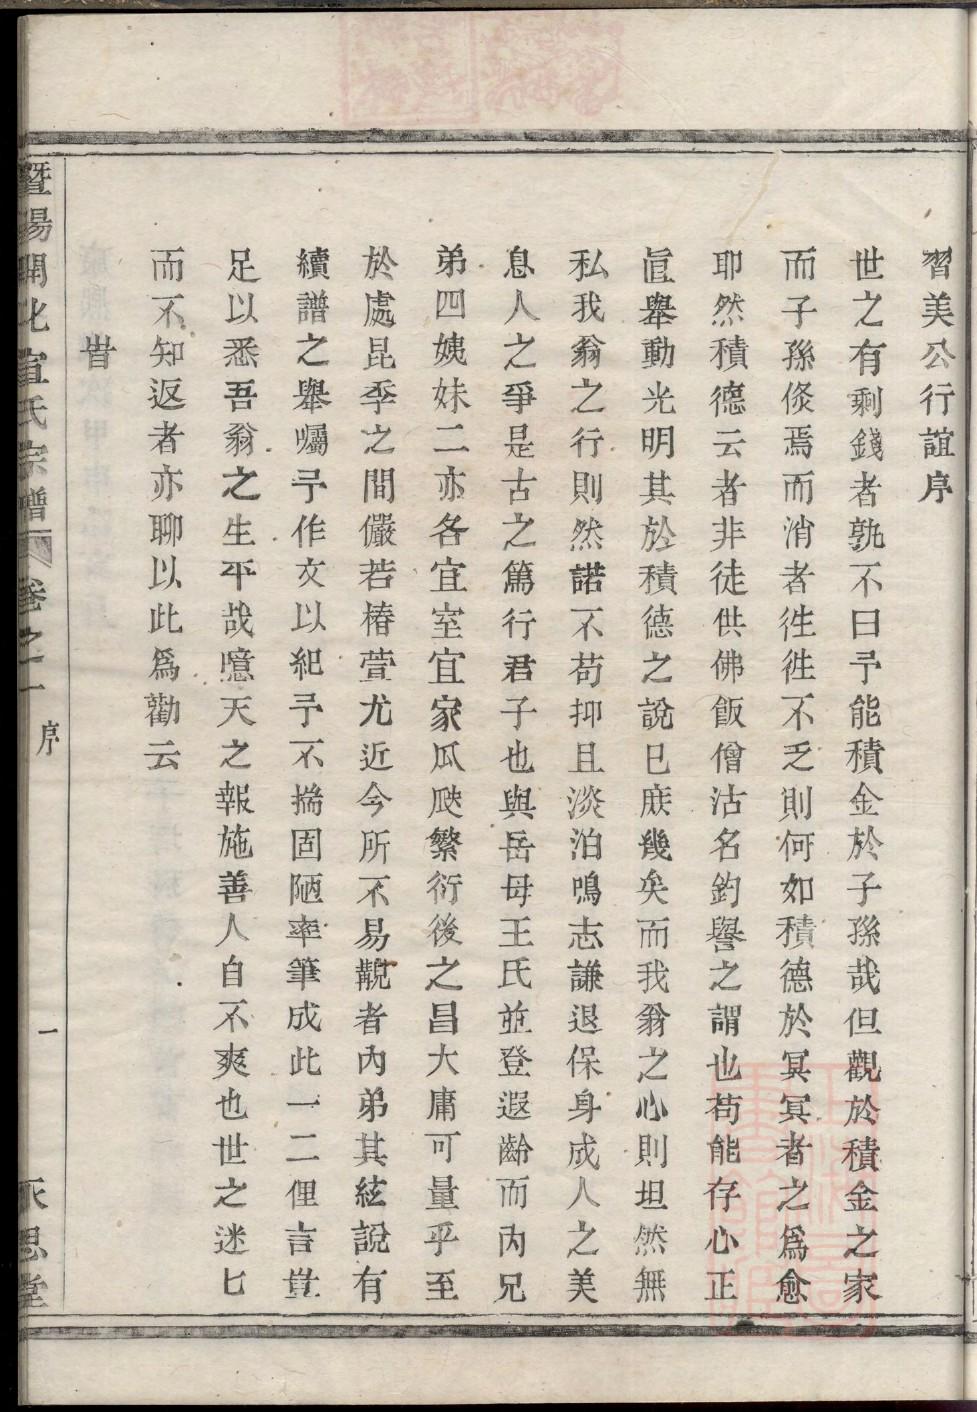 習美公行誼序
世之有剩錢者孰不曰予能積金於子孫哉但觀於積金之家
而子孫倐焉而消者徃徃不乏則何如積德於冥冥者之爲愈
耶然積德云者非徒供佛飯僧沽名釣譽之謂也苟能存心正
直舉動光明其於積德之說已庶幾矣而我翁之心則坦然無
私我翁之行則然諾不苟抑且淡泊鳴志謙退保身成人之美
息人之爭是古之篤行君子也與岳母王氏並登遐齡而內兄
弟四姨妹二亦各宜室宜家瓜瓞繁衍後之昌大庸可量乎至
於處昆季之間儼若椿萱尤近今所不易覯者內弟其絃說有
續譜之舉囑予作文以紀予不揣固陋率筆成此一二俚言豈
足以悉吾翁之生平哉噫天之報施善人自不爽也世之迷七
而不知返者亦聊以此爲勸云
旹
暨陽開化宣氏宗譜 卷之一 序 一 永思堂